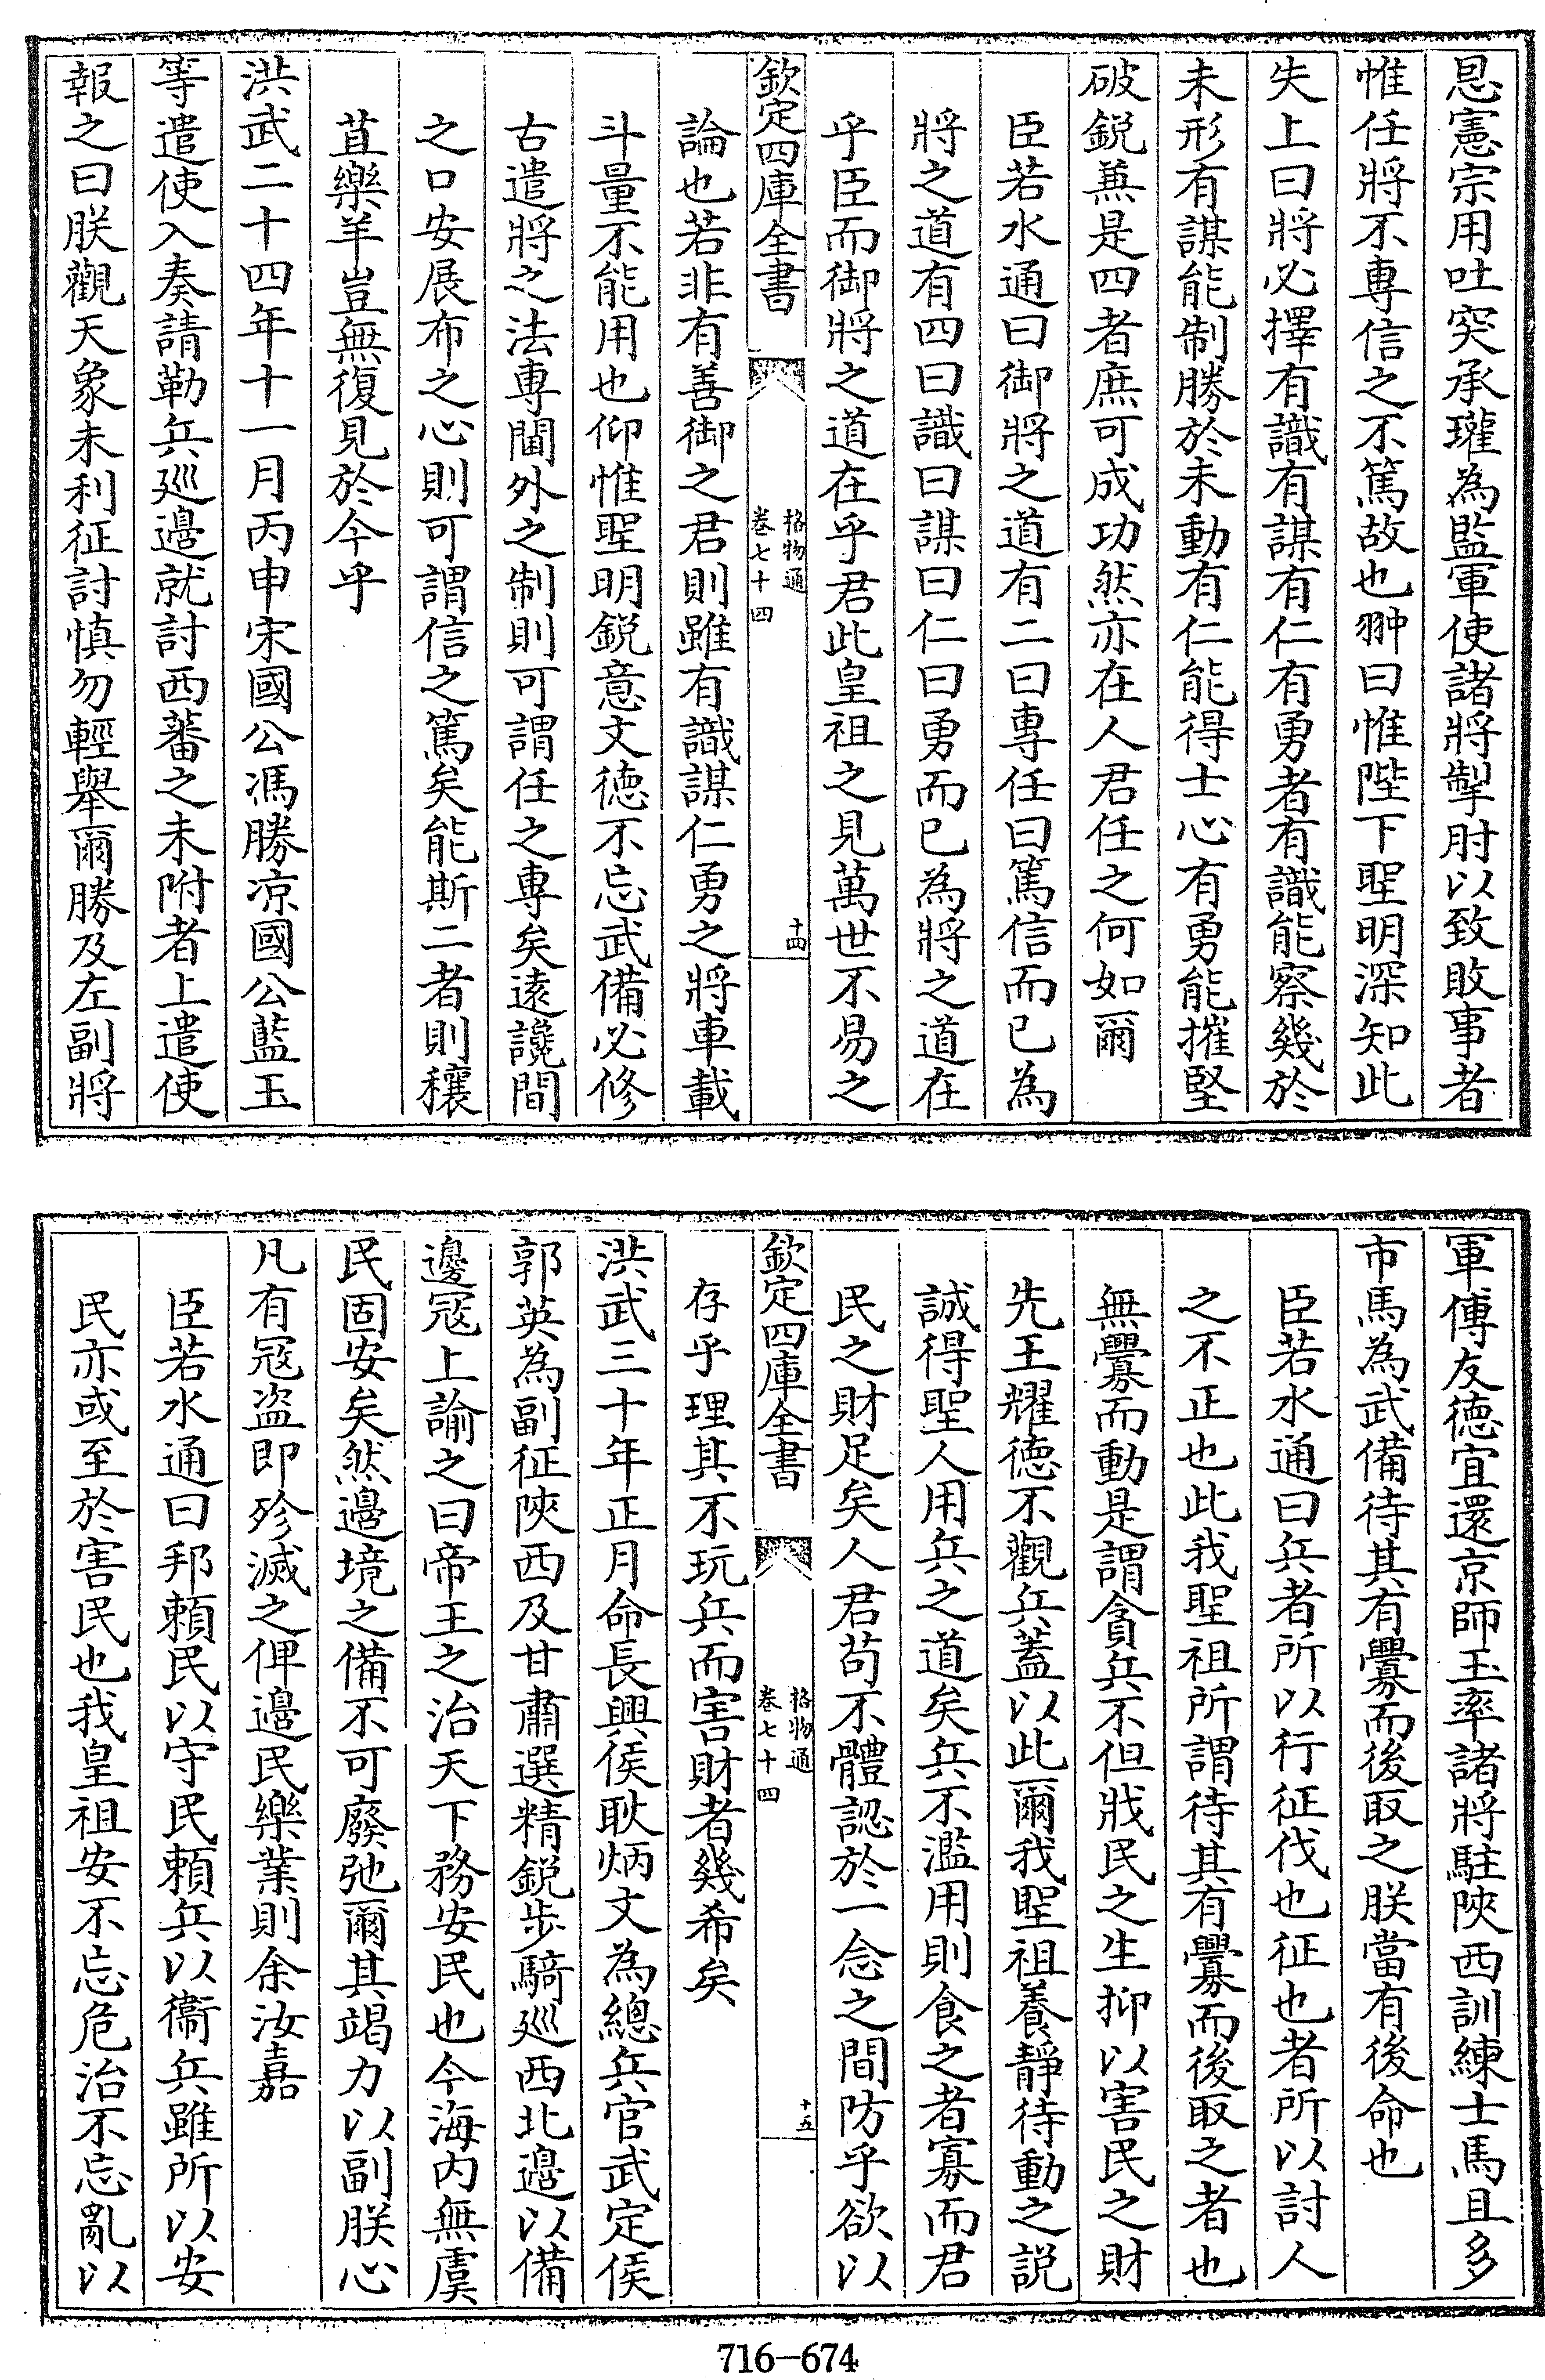 恩憲宗用吐突承璀為監軍使諸將掣肘以致敗事者
惟任將不專信之不篤故也翀曰惟陛下聖明深知此
失上曰將必擇有識有謀有仁有勇者有識能察幾於
未形有謀能制勝於未動有仁能得士心有勇能摧堅
破鋭兼是四者庶可成功然亦在人君任之何如爾
臣若水通曰御將之道有二曰專任曰篤信而已為
將之道有四曰識曰謀曰仁曰勇而已為將之道在
乎臣而御將之道在乎君此皇祖之見萬世不易之
欽定四庫全書
格物通
卷七十四
十四
論也若非有善御之君則雖有識謀仁勇之將車載
斗量不能用也仰惟聖明鋭意文德不忘武備必修
古遣將之法專閫外之制則可謂任之專矣遠讒間
之口安展布之心則可謂信之篤矣能斯二者則穰
苴樂羊豈無復見於今乎
洪武二十四年十一月丙申宋國公馮勝凉國公藍玉
等遣使入奏請勒兵廵邊就討西蕃之未附者上遣使
報之曰朕觀天象未利征討慎勿輕舉爾勝及左副將
軍傅友德宜還京師玉率諸將駐陜西訓練士馬且多
市馬為武備待其有釁而後取之朕當有後命也
臣若水通曰兵者所以行征伐也征也者所以討人
之不正也此我聖祖所謂待其有釁而後取之者也
無釁而動是謂貪兵不但戕民之生抑以害民之財
先王耀德不觀兵蓋以此爾我聖祖養靜待動之説
誠得聖人用兵之道矣兵不濫用則食之者寡而君
民之財足矣人君苟不體認於一念之間防乎欲以
欽定四庫全書
格物通
卷七十四
十五
存乎理其不玩兵而害財者幾希矣
洪武三十年正月命長興侯耿炳文為總兵官武定侯
郭英為副征陜西及甘肅選精鋭步騎廵西北邊以備
邊冦上諭之曰帝王之治天下務安民也今海内無虞
民固安矣然邊境之備不可廢弛爾其竭力以副朕心
凡有冦盗即殄滅之俾邊民樂業則余汝嘉
臣若水通曰邦賴民以守民賴兵以衞兵雖所以安
民亦或至於害民也我皇祖安不忘危治不忘亂以
716-674